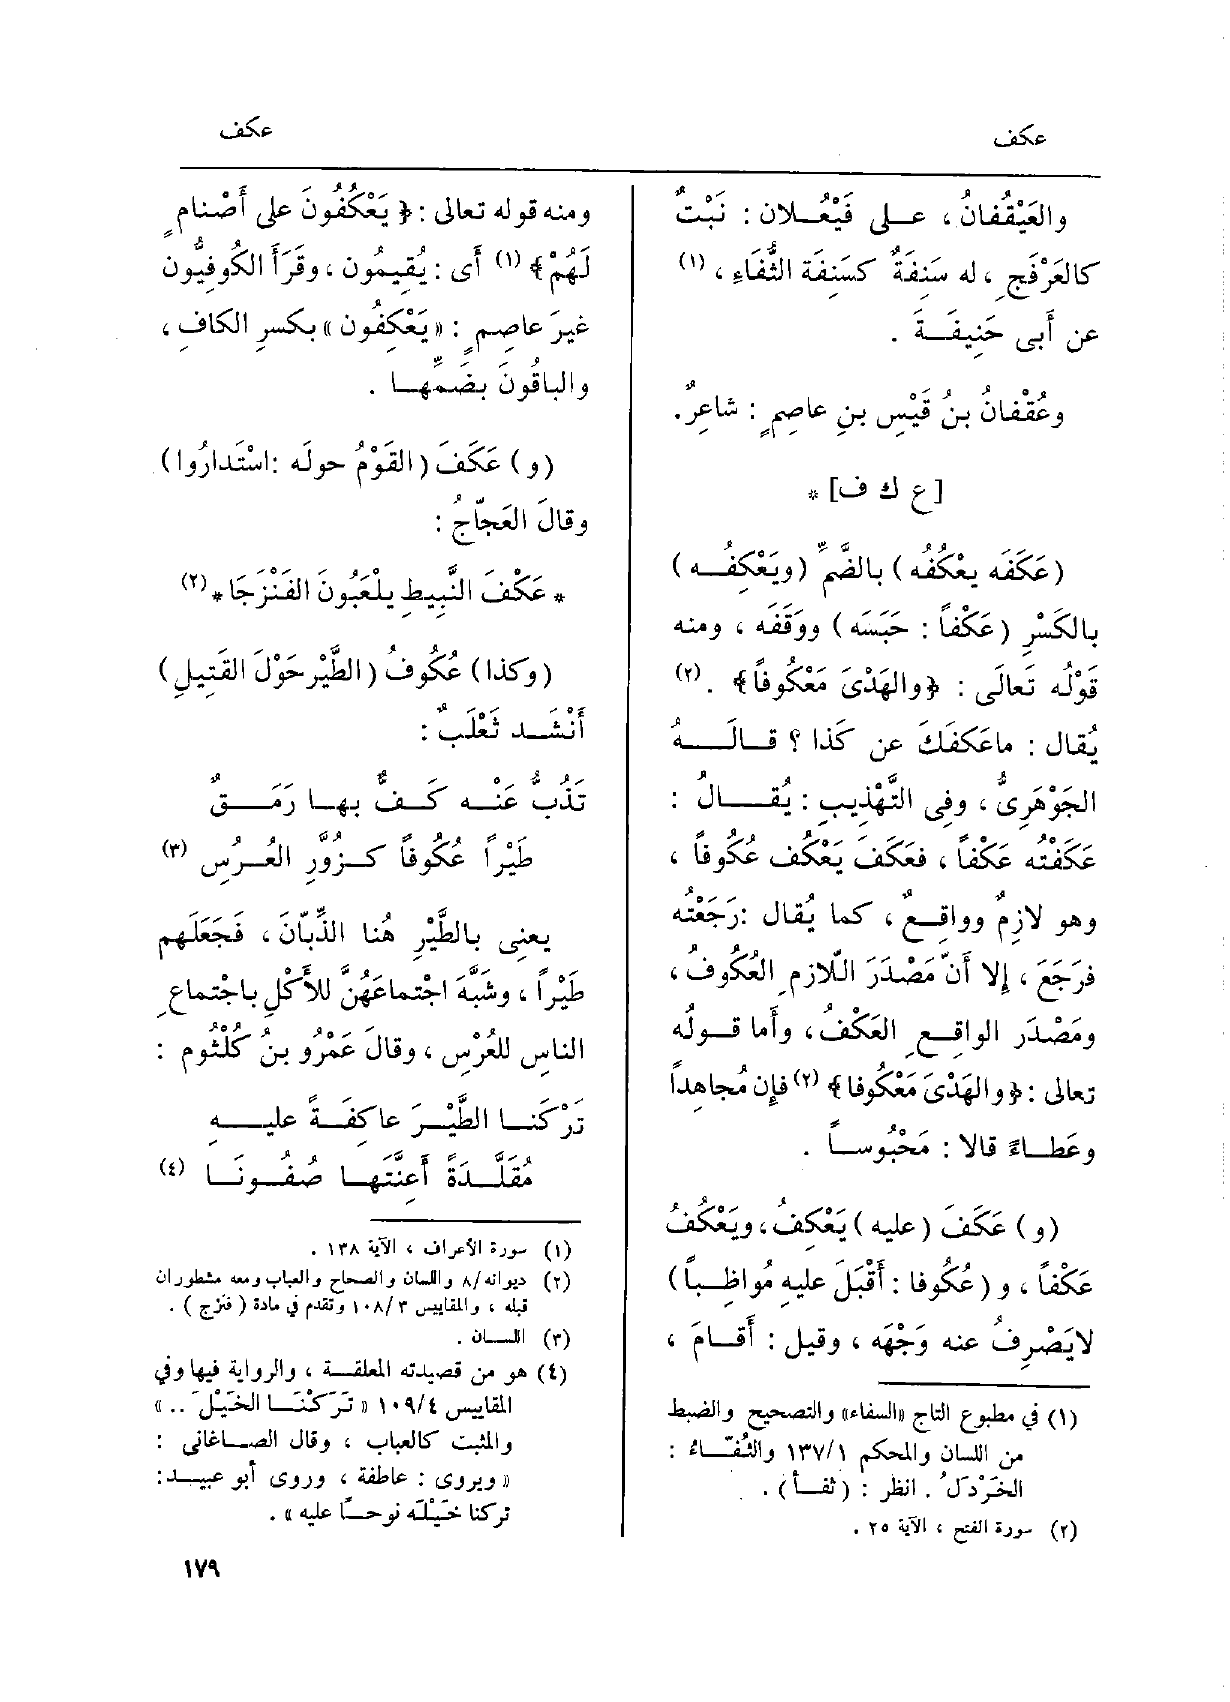 عكف
عكف
والعَيْقُفانُ ، على فَيْعُلان : نَبْتٌ
كالعَرْفَجِ ، له سَنِفَةٌ كسَنِفَة الثُّفَّاءِ ، (١)
عن أَبى حَنِيفَةَ .
وعُقْفانُ بنُ قَيْسِ بنِ عاصِمٍ : شاعِرٌ .
[ع ك ف] *
(عَكَفَه يعْكُفُه) بالضَّمِّ (ويَعْكِفُـه)
بالكَسْرِ (عَكْفاً : حَبَسَه) ووَقَفَه ، ومنه
قَوْلُه تَعالَى : ﴿والهَدْىَ مَعْكُوفاً﴾ . (٢)
يُقال : ماعَكفَكَ عن كَذا ؟ قـالَـهُ
الجَوْهَرِىُّ ، وفى التَّهْذِيبِ : يُقـالُ :
عَكَفْتُه عَكْفاً ، فعَكَفَ يَعْكُف عُكُوفاً ،
وهو لازِمٌ وواقِـعٌ ، كما يُقال :رَجَعْتُه
فرَجَعَ ، إلا أَنَّ مَصْدَرَ اللّازِمِ العُكُوفُ ،
ومَصْدَر الواقِـعِ العَكْفُ ، وأَما قـولُه
تعالى : ﴿والهَدْىَ مَعْكُوفا﴾ (٢) فإن مُجاهِداً
وعَطـاءً قالا : مَحْبُوسـاً .
(و) عَكَفَ (عليه) يَعْكِفُ ، ويَعْكُفُ
عَكْفاً ، و (عُكُوفا : أَقْبَلَ عليهِ مُواظِباً)
لايَصْرِفُ عنه وَجْهَه ، وقيل : أَقـامَ ،
(١) في مطبوع التاج «السفاء» والتصحيح والضبط
من اللسان والمحكم ١/١٣٧ والثُفّـاء :
الخَرْدلُ . انظر : (ثفـأ) .
(٢) سورة الفتح ، الآية ٢٥ .
ومنه قوله تعالى : ﴿ يَعْكُفُونَ على أَصْنامٍ
لَهُمْ﴾ (١) أى : يُقِيمُون ، وقَرَأَ الكُوفِيُّون
غيرَ عاصِمٍ : «يَعْكِفُون» بكسرِ الكافِ ،
والباقُونَ بضَمِّهـا .
(و) عَكَفَ (القَوْمُ حولَه :اسْتَدارُوا)
وقالَ العَجّاجُ :
* عَكْفَ النَّبِيطِ يلْعَبُونَ الفَنْزَجَا * (٢)
(وكذا) عُكُوفُ (الطَّيْرِ حَوْلَ القَتِيلِ)
أَنْشَـد ثَعْلَبٌ :
تَذُبُّ عَنْـه كَـفٌّ بهـا رَمَـقٌ
طَيْراً عُكُوفاً كـزُوَّرِ العُـرُسِ (٣)
يعنِى بالطَّيْرِ هُنا الذِّبّانَ ، فَجَعَلَهم
طَيْراً ، وشَبَّهَ اجْتماعَهُنَّ للأَكْلِ باجْتماعِ
الناسِ للعُرْسِ ، وقالَ عَمْرُو بنُ كُلْثُوم :
تَرَكْنـا الطَّيْـرَ عاكِفَـةً عليـهِ
مُقَلَّـدَةً أَعِنَّتَهـا صُفُـونَـا (٤)
(١) سورة الأعراف ، الآية ١٣٨ .
(٢) ديوانه/٨ واللسان والصحاح والعباب ومعه مشطوران
قبله ، والمقاييس ٣ /١٠٨ وتقدم في مادة ( فنزج ) .
(٣) اللسـان .
(٤) هو من قصيدته المعلقـة ، والرواية فيها وفي
المقاييس ٤/١٠٩ « تَرَكْنَـا الخَيْلَ .. »
والمثبت كالعباب ، وقال الصـاغانى :
« ويروى : عاطفة ، وروى أبو عبيـد:
تركنا خَيْلَه نوحـًا عليه » .
١٧٩